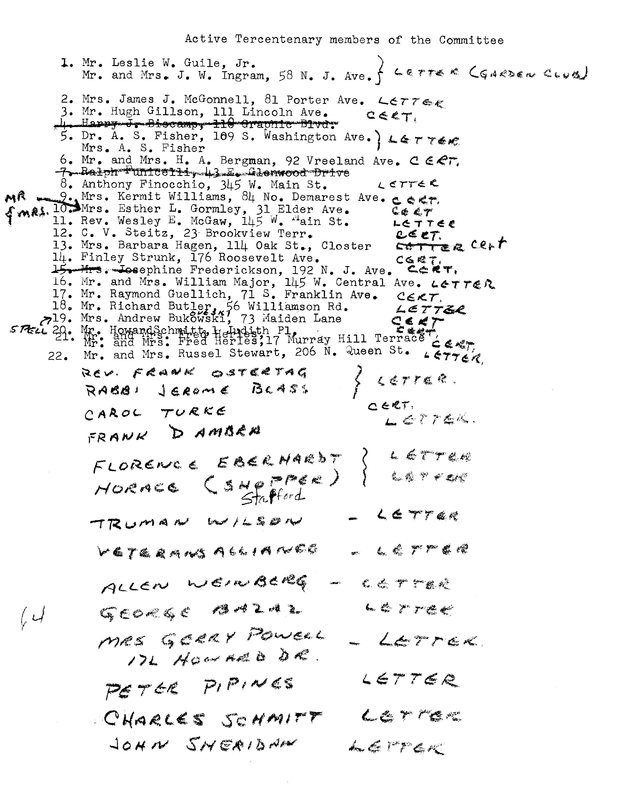 Active Tercentenary members of the Committee
1. Mr. Leslie W. Guile, Jr.
Mr. and Mrs. J. W. Ingram, 58 N. J. Ave. } LETTER (GARDEN CLUB)
2. Mrs. James J. McGonnell, 81 Porter Ave. LETTER
3. Mr. Hugh Gillson, 111 Lincoln Ave. CERT.
4. Harry J. Biscamp, 118 Graphic Blvd.
5. Dr. A. S. Fisher, 109 S. Washington Ave. } LETTER
Mrs. A. S. Fisher
6. Mr. and Mrs. H. A. Bergman, 92 Vreeland Ave. CERT.
7. Ralph Funicelli, 43 E. Glenwood Drive
8. Anthony Finocchio, 345 W. Main St. LETTER
MR & MRS.
9. Mrs. Kermit Williams, 84 No. Demarest Ave. CERT.
10. Mrs. Esther L. Gormley, 31 Elder Ave. CERT
11. Rev. Wesley E. McGaw, 145 W. Main St. LETTER
12. C. V. Steitz, 23 Brookview Terr. CERT.
13. Mrs. Barbara Hagen, 114 Oak St., Closter LETTER cert
14. Finley Strunk, 176 Roosevelt Ave. CERT.
15. Mrs. Josephine Frederickson, 192 N. J. Ave. CERT.
16. Mr. and Mrs. William Major, 145 W. Central Ave. LETTER
17. Mr. Raymond Guellich, 71 S. Franklin Ave. CERT.
18. Mr. Richard Butler, 56 Williamson Rd. LETTER
19. Mrs. Andrew Bukowski, 73 Maiden Lane CERT
SPELL 20. Mr. Howard Schmitt, 1 Judith Pl. CERT
21. Mr. and Mrs. Fred Herles, 17 Murray Hill Terrace CERT.
22. Mr. and Mrs. Russel Stewart, 206 N. Queen St. LETTER.
REV. FRANK OSTERTAG
RABBI JEROME BLASS } LETTER.
CAROL TURKE CERT.
FRANK D AMBRA LETTER.
FLORENCE EBERHARDT } LETTER
HORACE (SHOPPER) } LETTER
Stafford
TRUMAN WILSON - LETTER
VETERANS ALLIANCE - LETTER
ALLEN WEINBERG - LETTER
GEORGE BAZAZ LETTER
64
MRS GERRY POWELL - LETTER.
172 HOWARD DR.
PETER PIPINES LETTER
CHARLES SCHMITT LETTER
JOHN SHERIDAN LETTER